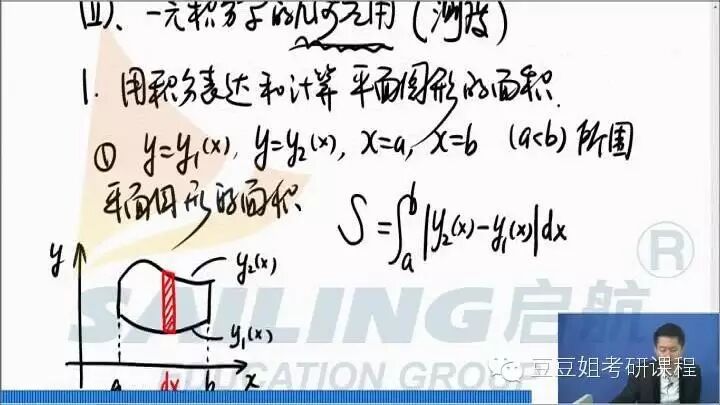 (Ⅱ)、一元积分学的几何应用(测度)
1. 用积分表达和计算平面图形的面积.
① y=y₁(x), y=y₂(x), x=a, x=b (a<b) 所围
平面图形的面积
S=∫ₐᵇ|y₂(x)-y₁(x)|dx
y
y₂(x)
y₁(x)
a dx b x
SAILING启航®
EDUCATION GROUP
豆豆姐考研课程